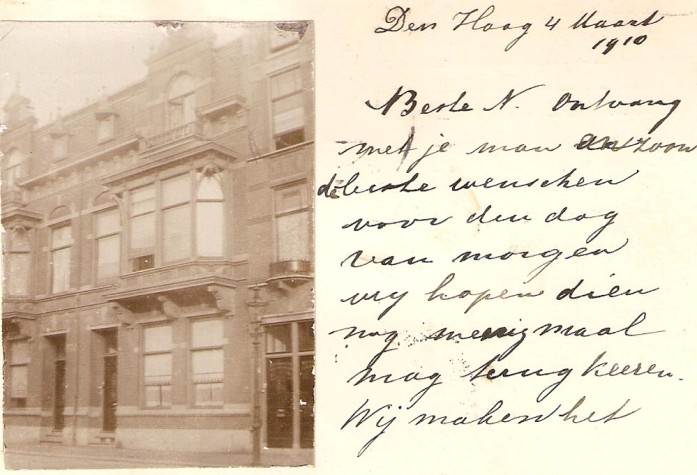 Den Haag 4 Maart
1910
Beste N. Ontvang
met je man en zoon
de beste wenschen
voor den dag
van morgen
wij hopen dien
nog menig maal
mag terug keeren.
Wij maken het